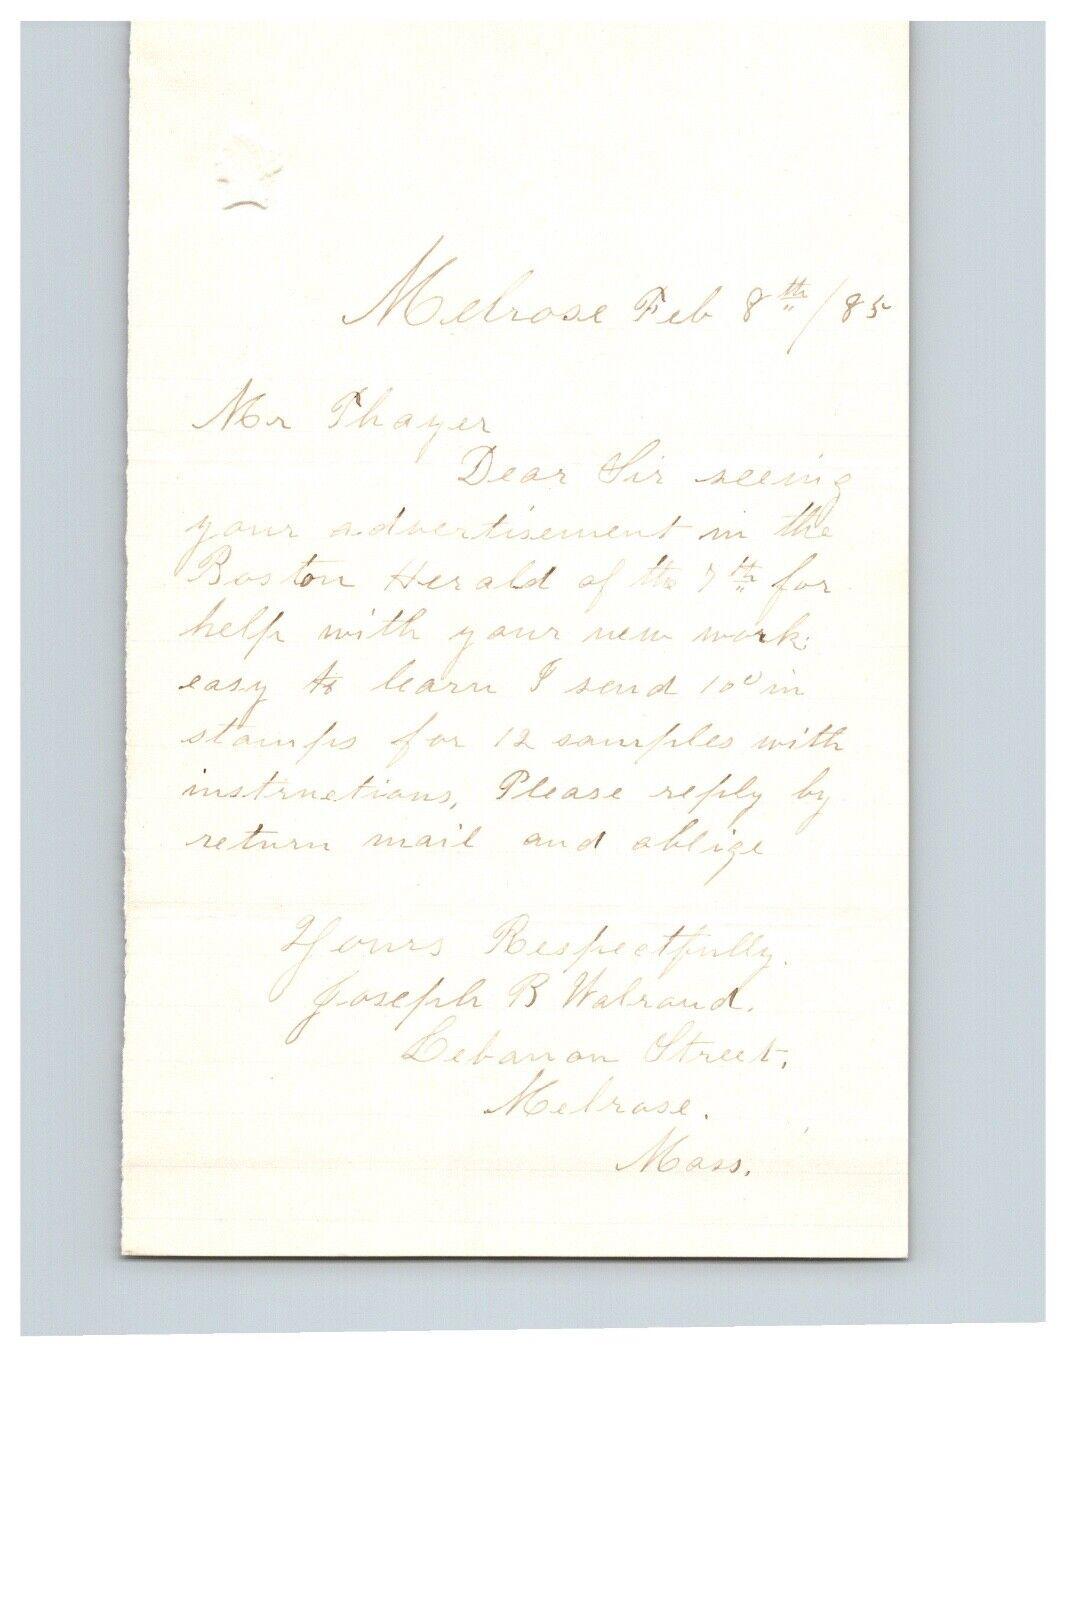 Melrose Feb 8th/85
Mr Thayer
Dear Sir seeing
your advertisement in the
Boston Herald of the 7th for
help with your new work:
easy to learn I send 10c in
stamps for 12 samples with
instructions, Please reply by
return mail and oblige
Yours Respectfully.
Joseph B Walraud.
Lebanon Street.
Melrose.
Mass.